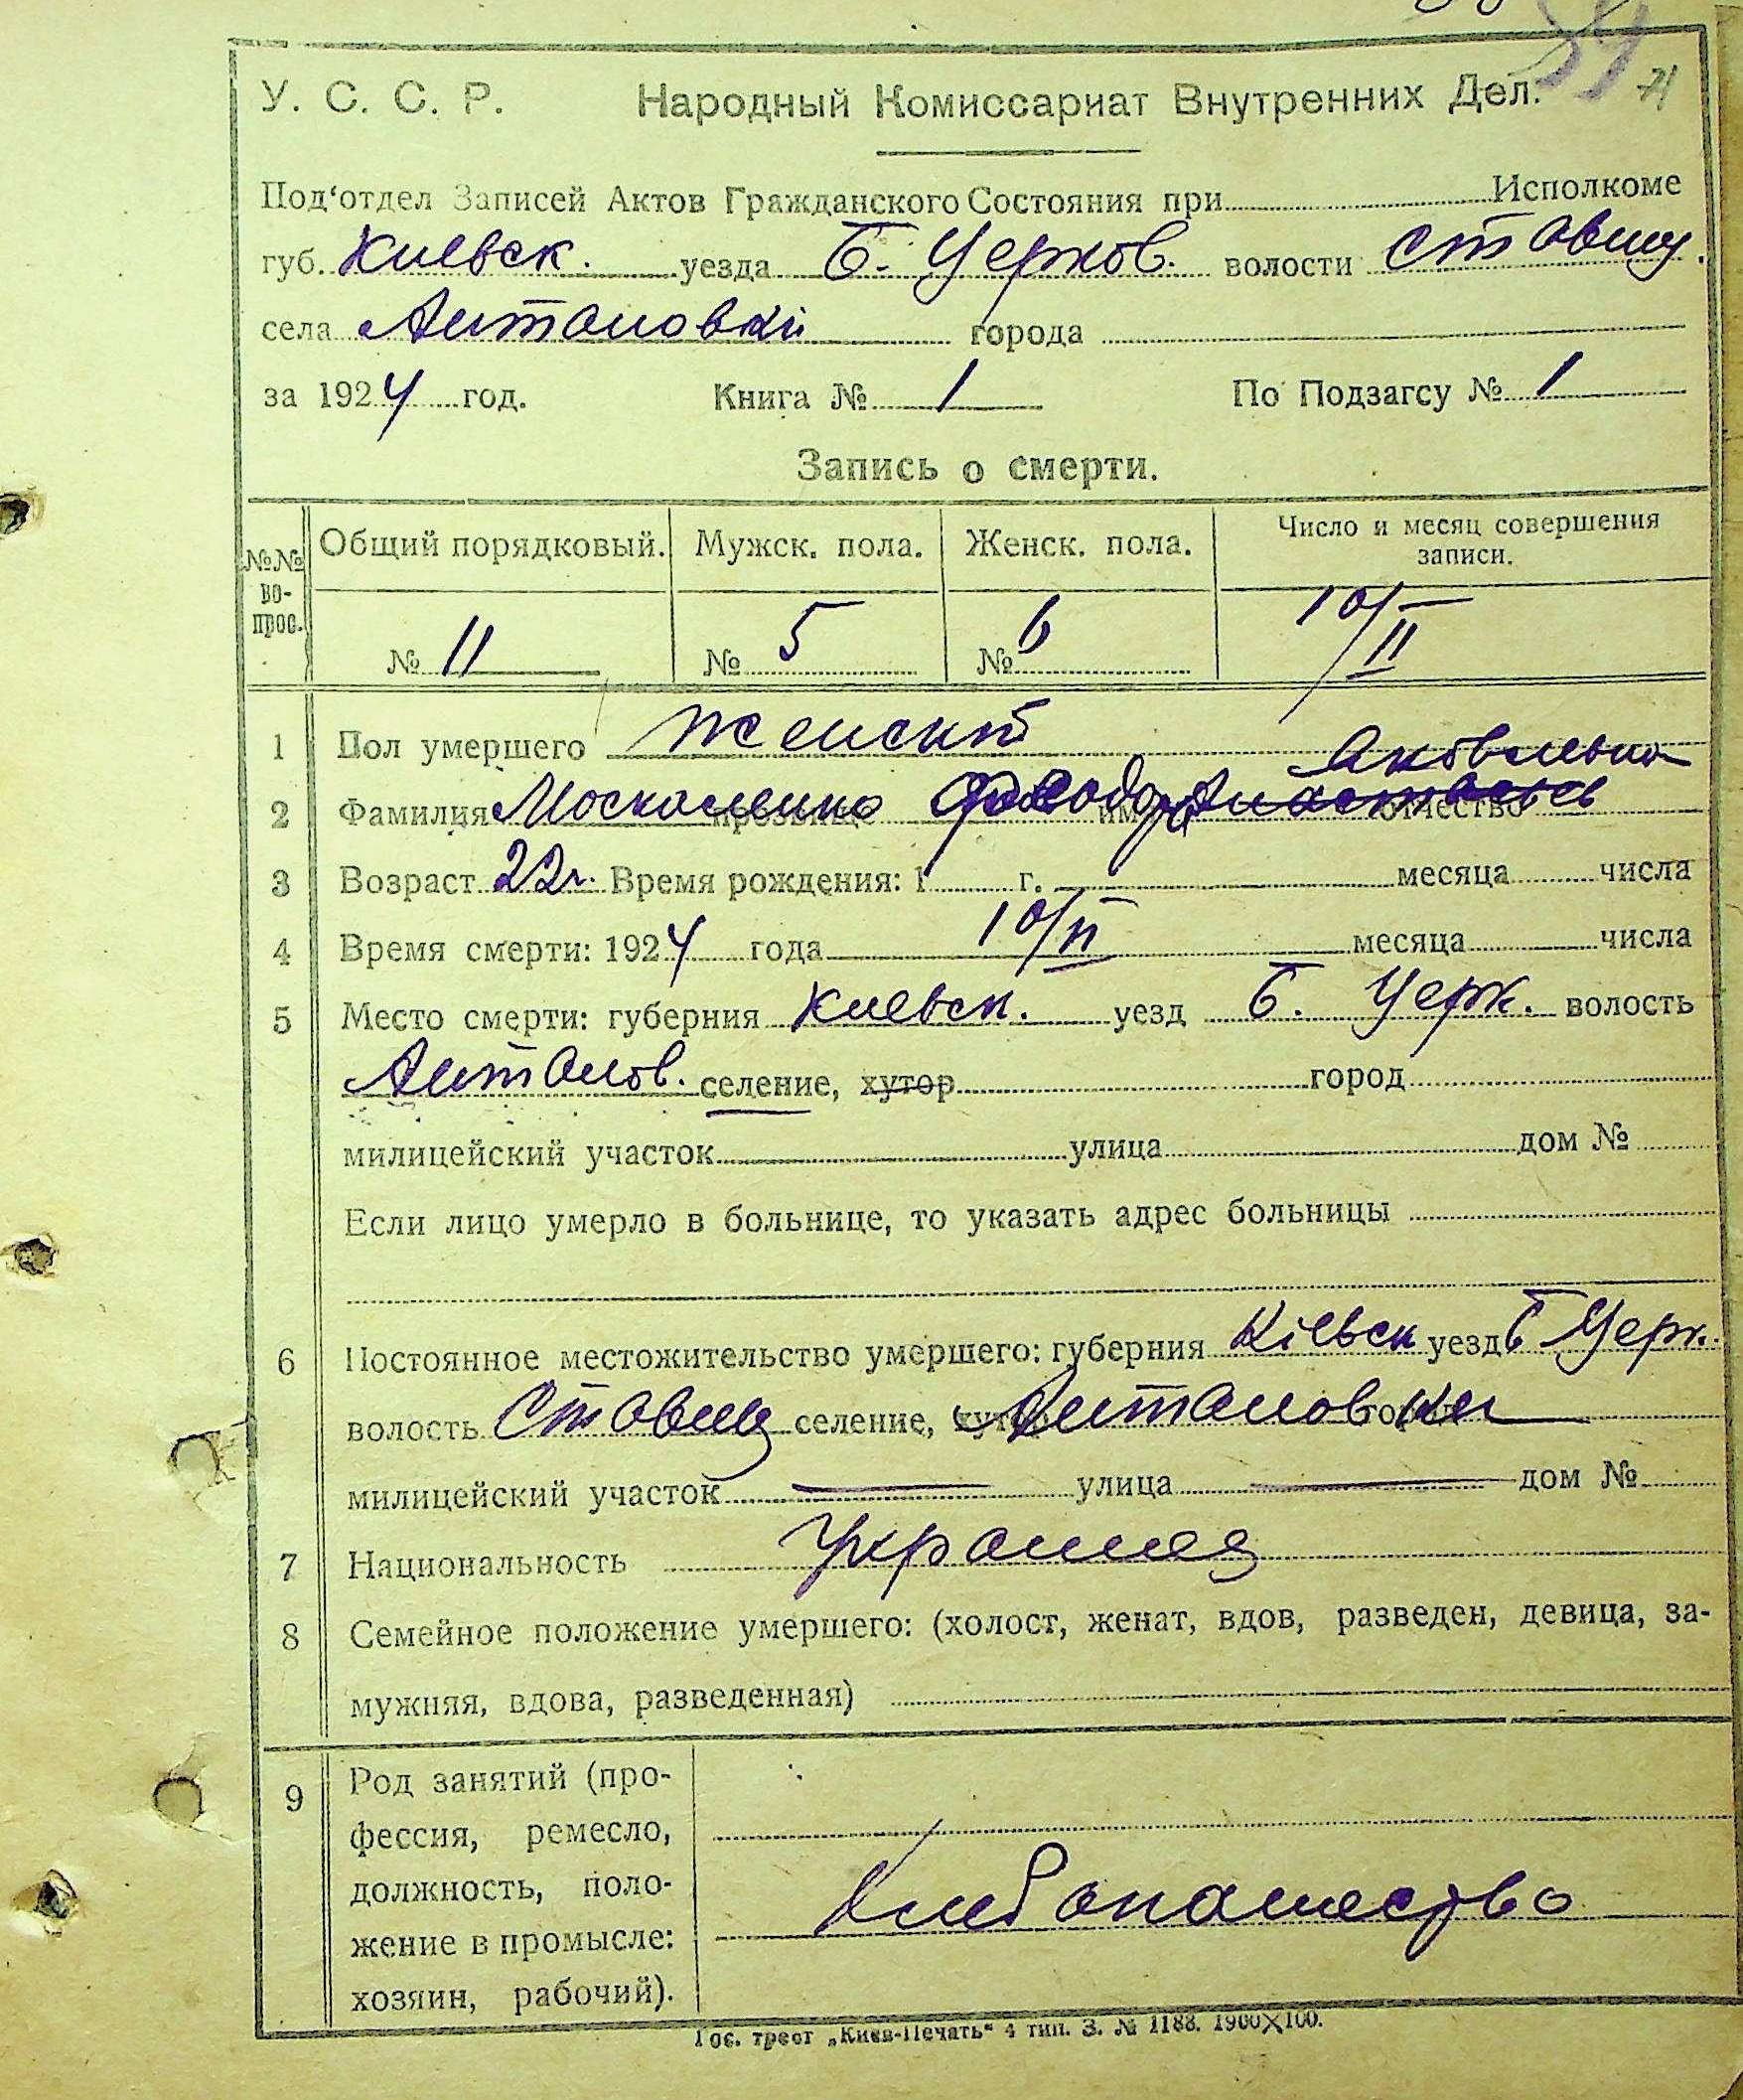 У. С. С. Р. Народный Комиссариат Внутренних Дел.
Под‘отдел Записей Актов Гражданского Состояния при Исполкоме
губ. Киевск. уезда Б. Церков. волости Ставищ.
села Антоновки города
за 1924 год. Книга № 1 По Подзагсу № 1
Запись о смерти.
№№ во-прос. Общий порядковый. Мужск. пола. Женск. пола. Число и месяц совершения записи.
№ 11 № 5 № 6 10/II
1 Пол умершего женский
Яковлевна
2 Фамилия Москаленко прозвище имя отчество
3 Возраст 22 г. Время рождения: 1 г. месяца числа
4 Время смерти: 1924 года 10/II месяца числа
5 Место смерти: губерния Киевск. уезд Б. Церк. волость
Антонов. селение, хутор город
милицейский участок улица дом №
Если лицо умерло в больнице, то указать адрес больницы
6 Постоянное местожительство умершего: губерния Кіевск уезд Б Церк.
волость Ставищ селение, хутор Антоновки
милицейский участок улица дом №
7 Национальность Украинец
8 Семейное положение умершего: (холост, женат, вдов, разведен, девица, за-
мужняя, вдова, разведенная)
9 Род занятий (про-
фессия, ремесло,
должность, поло-
жение в промысле:
хозяин, рабочий).
Хлебопашество
Гос. трест „Киев-Печать“ 4 тип. З. № 1188. 1900×100.